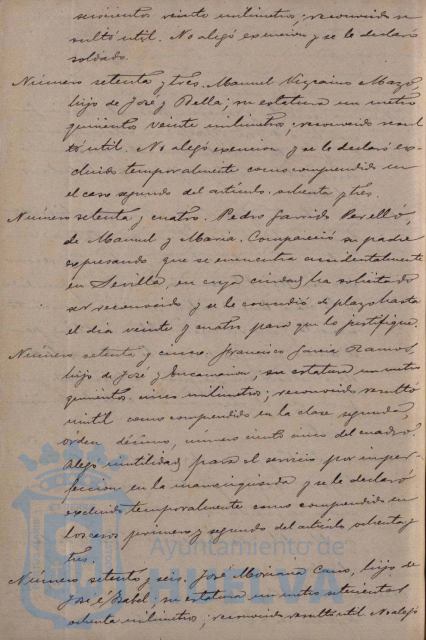 seiscientos veinte milímetros; reconocido re-
sultó útil. No alegó exencion y se le declaró
soldado.
Número setenta y tres. Manuel Vizcaino Mazo,
hijo de José y Bella; su estatura un metro
quinientos veinte milímetros; reconocido resul-
tó útil. No alegó exencion y se le declaró ex-
cluido temporalmente como comprendido en
el caso segundo del artículo ochenta y tres.
Número setenta y cuatro. Pedro Garrido Perelló,
de Manuel y Maria. Compareció su padre
expresando que se encuentra accidentalmente
en Sevilla, en cuya ciudad ha solicitado
ser reconocido y se le concedió de plazo hasta
el dia veinte y cuatro para que lo justifique.
Número setenta y cinco. Francisco Garcia Ramos,
hijo de José y Encarnacion, su estatura un metro
quinientos cinco milímetros; reconocido resultó
inutil como comprendido en la clase segunda,
orden décimo, número ciento cinco del cuadro.
Alegó inutilidad para el servicio por imper-
feccion en la mano izquierda y se le declaró
excluido temporalmente como comprendido en
los casos primero y segundo del artículo ochenta y
tres.
Número setenta y seis. José Moriana Cano, hijo de
José é Isabel; su estatura un metro setecientos
ochenta milímetros; reconocido resultó útil. No alegó
Ayuntamiento de
HUELVA